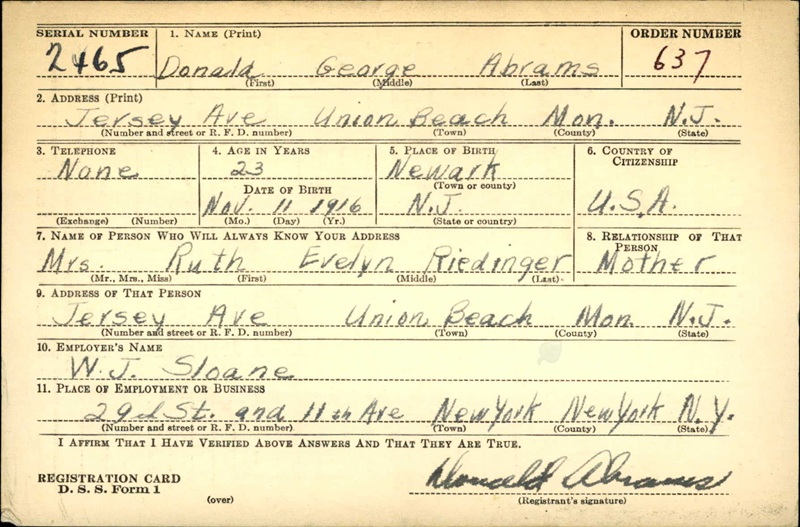 SERIAL NUMBER 1. NAME (Print) ORDER NUMBER
2465 Donald George Abrams 637
(First) (Middle) (Last)
2. ADDRESS (Print)
Jersey Ave Union Beach Mon. N.J.
(Number and street or R. F. D. number) (Town) (County) (State)
3. TELEPHONE 4. AGE IN YEARS 5. PLACE OF BIRTH 6. COUNTRY OF CITIZENSHIP
None 23 Newark
DATE OF BIRTH (Town or county)
Nov. 11 1916 N.J. U.S.A.
(Exchange) (Number) (Mo.) (Day) (Yr.) (State or country)
7. NAME OF PERSON WHO WILL ALWAYS KNOW YOUR ADDRESS 8. RELATIONSHIP OF THAT PERSON
Mrs. Ruth Evelyn Riedinger Mother
(Mr., Mrs., Miss) (First) (Middle) (Last)
9. ADDRESS OF THAT PERSON
Jersey Ave Union Beach Mon. N.J.
(Number and street or R. F. D. number) (Town) (County) (State)
10. EMPLOYER'S NAME
W.J. Sloane
11. PLACE OF EMPLOYMENT OR BUSINESS
29th St. and 11th Ave New York New York N.Y.
(Number and street or R. F. D. number) (Town) (County) (State)
I AFFIRM THAT I HAVE VERIFIED ABOVE ANSWERS AND THAT THEY ARE TRUE.
REGISTRATION CARD
D. S. S. Form 1 Donald Abrams
(over) (Registrant's signature)